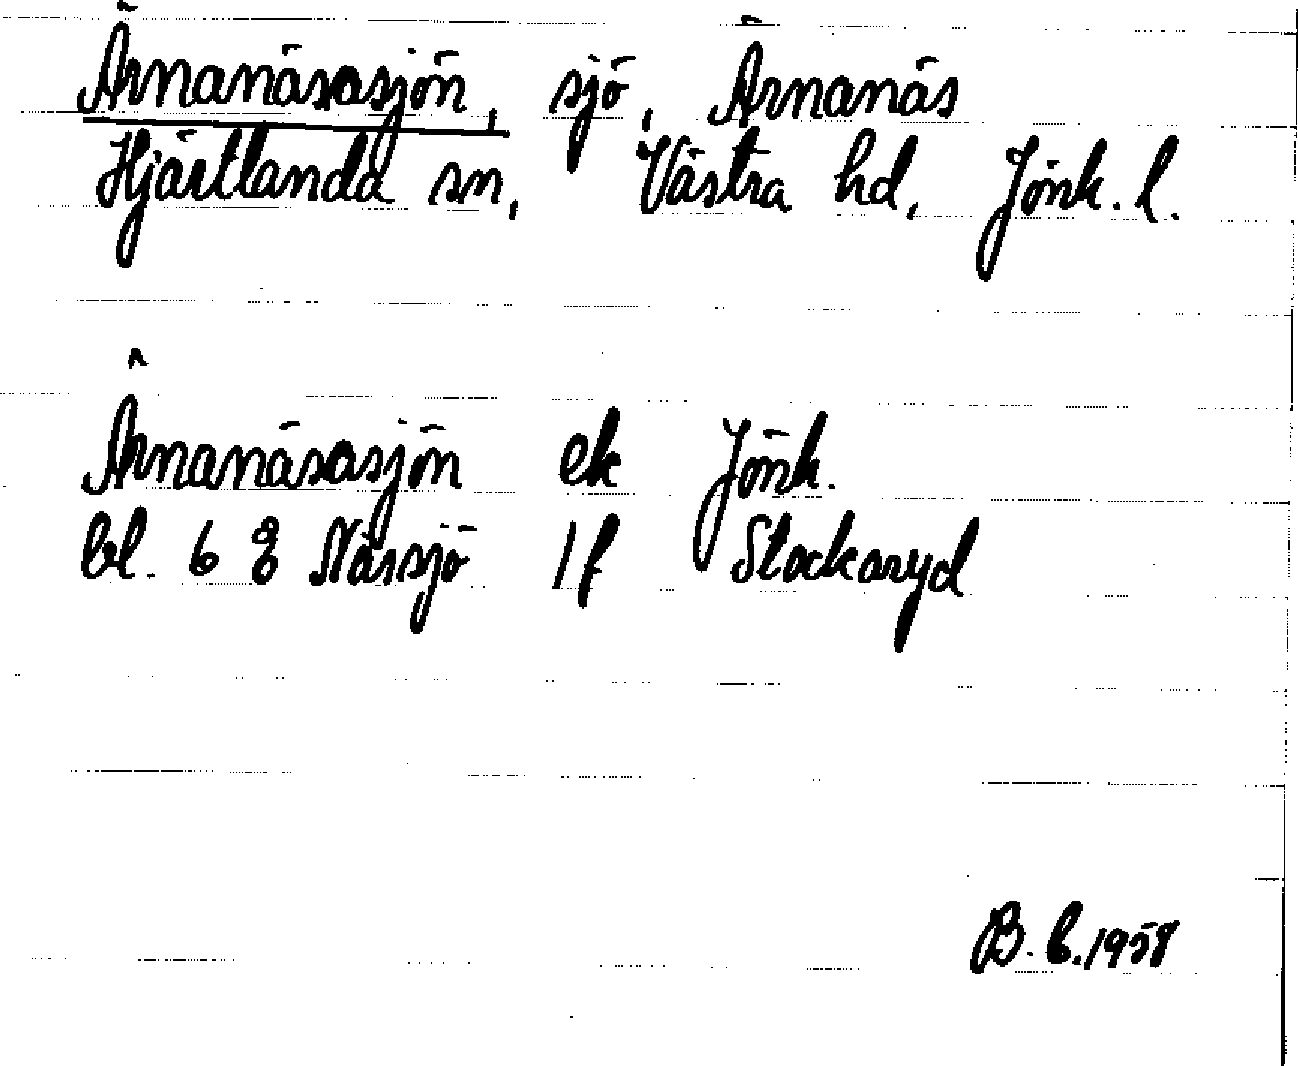 Ärnanäsasjön, sjö, Ärnanäs
Hjärtlanda sn, Västra hd, Jönk. l.
Ärnanäsasjön ek Jönk.
bl. 6 8 Nässjö 1f Stockaryd
B. b. 1958